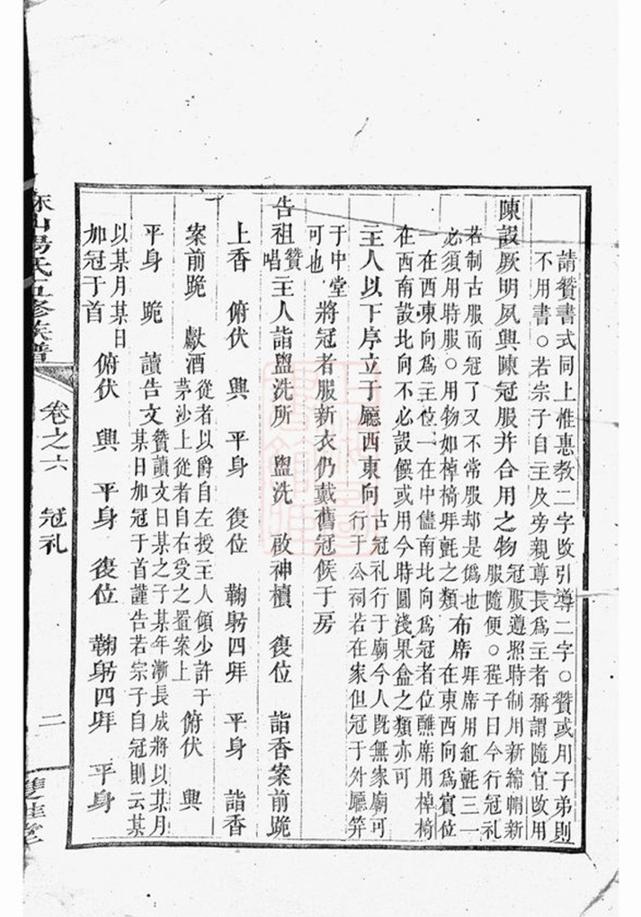 請贊書式同上惟惠教二字改引導二字○贊或用子弟則
不用書○若宗子自主及旁親尊長爲主者稱謂隨宜改用
陳設厥明夙興陳冠服并合用之物冠服遵照時制用新締帽新
服隨便○程子曰今行冠礼
若制古服而冠了又不常服却是僞也
必須用時服○用物如棹椅拜氈之類布席拜席用紅氈三一
在東西向爲賓位
一在西東向爲主位一在中儘南北向爲冠者位醮席用棹椅
在西南設北向不必設饌或用今時圓淺果盒之類亦可
主人以下序立于廳西東向古冠礼行于廟今人旣無家廟可
行于公祠若在家但冠于外廳笄
于中堂
可也將冠者服新衣仍戴舊冠候于房
告祖贊
唱主人詣盥洗所 盥洗 啟神櫝 復位 詣香案前跪
上香 俯伏 興 平身 復位 鞠躬四拜 平身 詣香
案前跪 獻酒從者以爵自左授主人傾少許于
茅沙上從者自右受之置案上俯伏 興
平身 跪 讀告文贊讀文曰某之子某年漸長成將以某月
某日加冠于首謹告若宗子自冠則云某
以某月某日
加冠于首俯伏 興 平身 復位 鞠躬四拜 平身
山湯氏五修族譜
卷之六 冠礼
二
雙桂堂